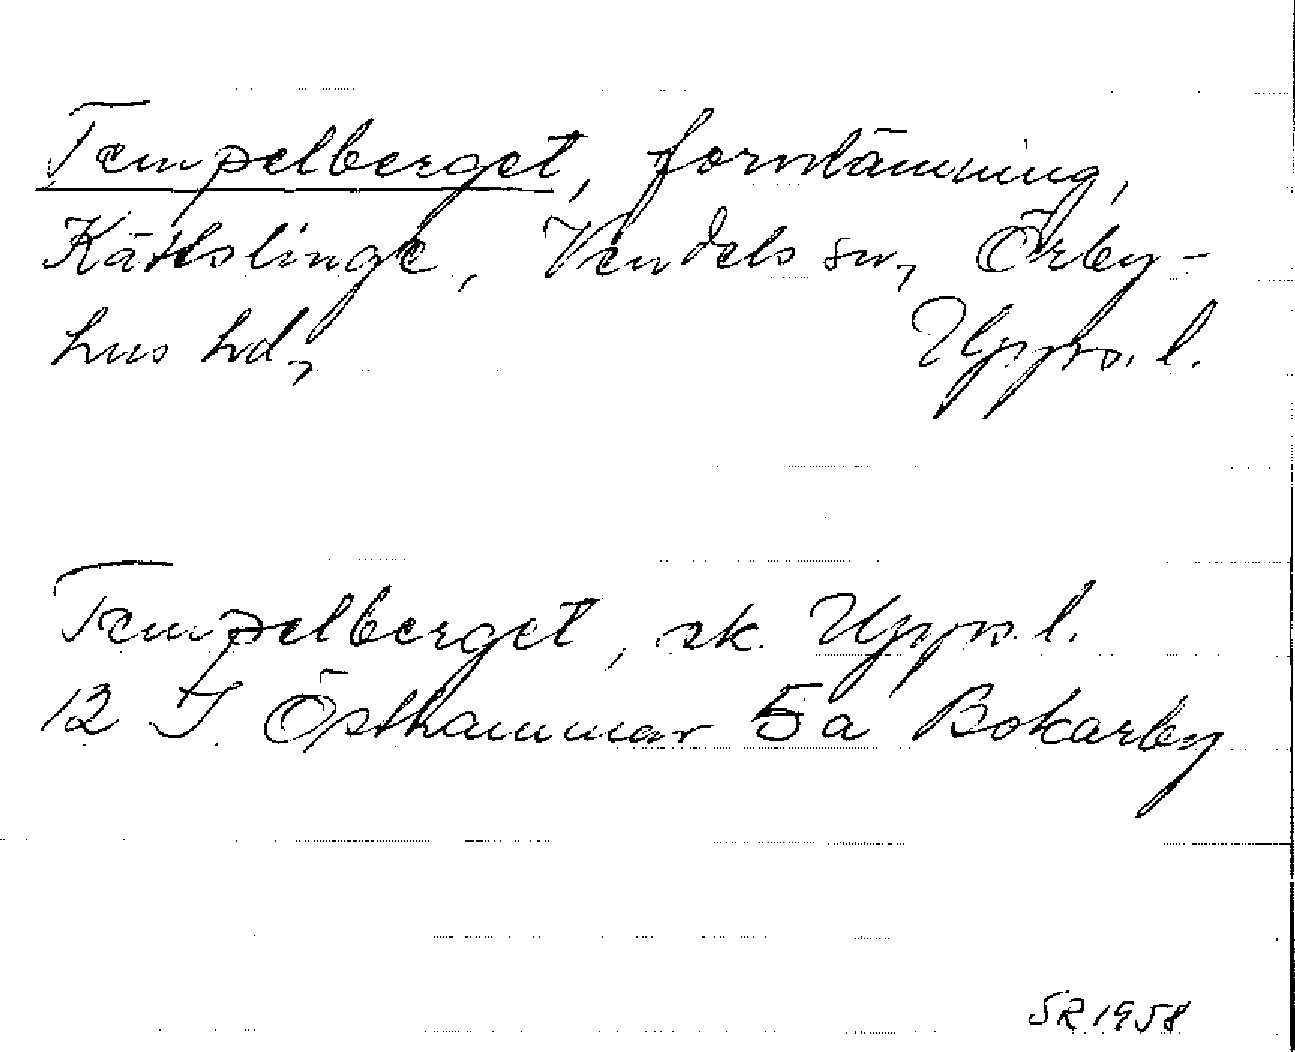 Tempelberget, fornlämning,
Kättslinge, Vendels sn, Örby-
hus hd, Upps. l.
Tempelberget, ek. Upps. l.
12 I Östhammar 5a Bokarby
SR 1958